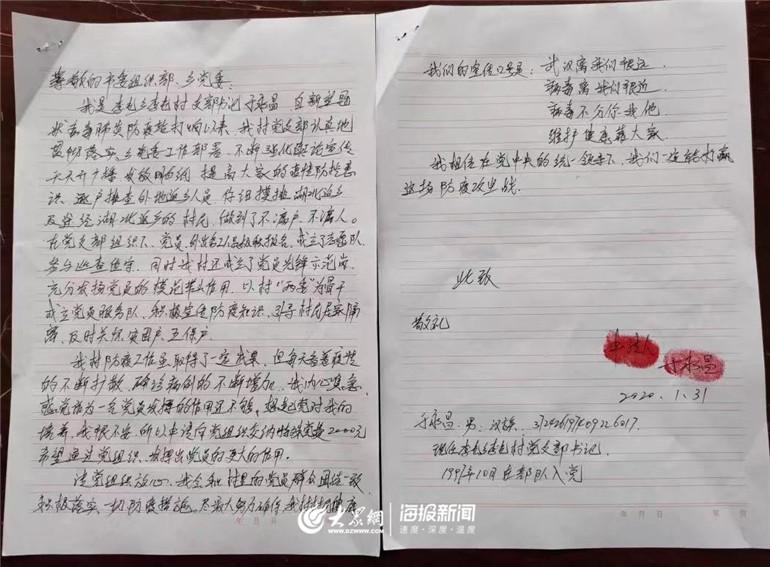 尊敬的市委组织部、乡党委：
我是李屯乡李屯村支部书记于永昌，自新型冠
状病毒肺炎防疫战打响以来，我村党支部认真地
贯彻落实乡党委工作部署，不断强化舆论宣传
天天开广播，提高大家的疫情防控意
识，逐户排查外地返乡人员，仔细摸排湖北返乡
及途经湖北返乡的村民，做到了不漏户、不漏人。
在党支部组织下，党员、积极报名，成立了志愿队
参与巡查值守，同时我村还成立了党员先锋示范岗，
充分发挥党员的模范带头作用，以村“两委”为骨干
成立党员服务队，积极宣传防疫知识，引导村民居家隔
离，及时关怀贫困户、五保户。
我村防疫工作虽取得了一定成果，但每天看着疫情
的不断扩散，确诊病例的不断增加，我内心焦急，
感觉作为一名党员发挥的作用还不够，想起党对我的
培养，我很不安，所以申请向党组织交纳特殊党费2000元
希望通过党组织，发挥出党员的更大的作用。
请党组织放心，我会和村里的党员群众团结一致
积极落实一切防疫措施，尽最大努力确保我村村民健康
我们的宣传口号是：武汉离我们很远
病毒离我们很近
病毒不分你我他
维护健康靠大家
我相信在党中央的统一领导下，我们一定能打赢
这场防疫攻坚战。
此致
敬礼
于永昌
2020.1.31
于永昌，男，汉族，
现任李屯乡李屯村党支部书记，
1991年10月在部队入党
年 月 日
年 月 日 第 页
大众网 海报新闻
WWW.DZWWW.COM 速度·深度·温度